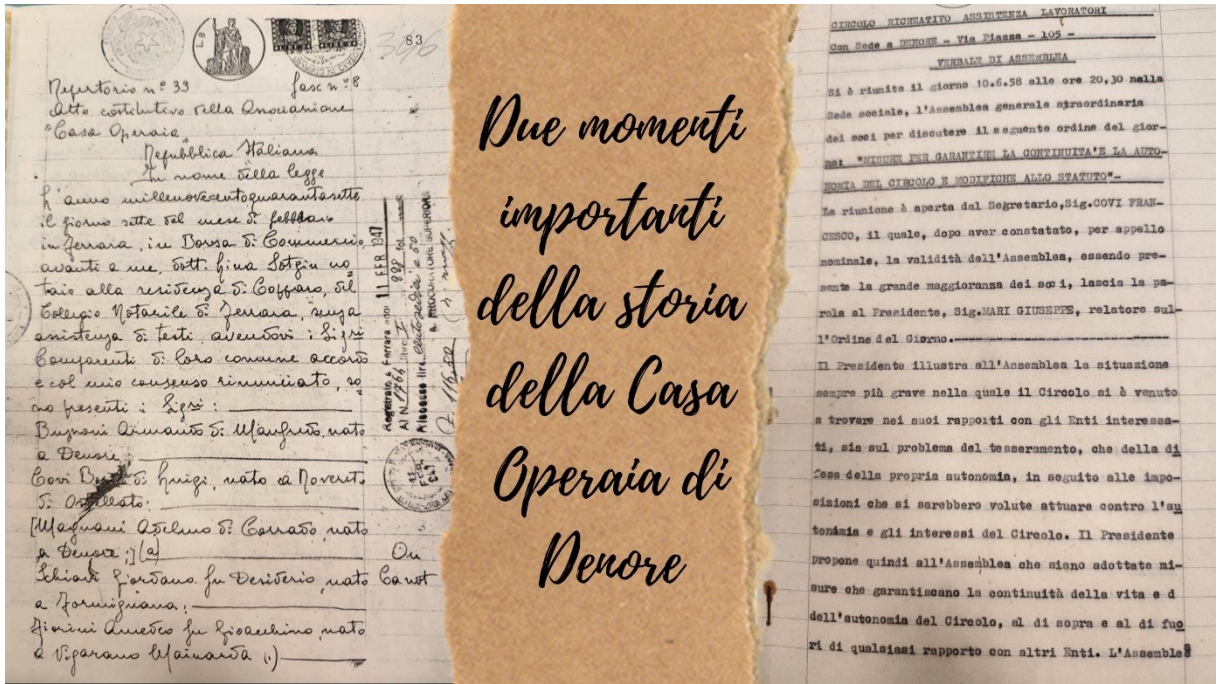 83
Repertorio n° 33 fasc n° 8
Atto costitutivo della Associazione
"Casa Operaia"
Repubblica Italiana
In nome della legge
L'anno millenovecentoquarantasette
il giorno sette del mese di febbraio
in Ferrara, in Borsa di Commercio,
avanti a me, dott. Gina Sotgiu no
taio alla residenza di Copparo, del
Collegio Notarile di Ferrara, senza
assistenza di testi, avendovi i Sigri
Comparenti di loro comune accordo
e col mio consenso rinunciato, so
no presenti i Sigri:
Bugnoni Armando di Manfredo, nato
a Denore;
Covi di Luigi, nato a Rovereto
di Ostellato;
[Magnani Adelmo di Corrado nato
a Denore;] (a)
Schiari Giordano fu Desiderio, nato
a Formignana;
Fiorini Amedeo fu Gioacchino, nato
a Vigarano Mainarda
11 FEB 1947
Due momenti
importanti
della storia
della Casa
Operaia di
Denore
CIRCOLO RICREATIVO ASSISTENZA LAVORATORI
Con Sede a DENORE - Via Piazza - 105 -
VERBALE DI ASSEMBLEA
Si è riunita il giorno 10.6.58 alle ore 20,30 nella
Sede sociale, l'Assemblea generale straordinaria
dei soci per discutere il seguente ordine del gior-
no: "MISURE PER GARANTIRE LA CONTINUITA'E LA AUTO-
NOMIA DEL CIRCOLO E MODIFICHE ALLO STATUTO"-
La riunione è aperta dal Segretario,Sig.COVI FRAN-
CESCO, il quale, dopo aver constatato, per appello
nominale, la validità dell'Assemblea, essendo pre-
sente la grande maggioranza dei soci, lascia la pa-
rola al Presidente, Sig.MARI GIUSEPPE, relatore sul-
l'Ordine del Giorno.-
Il Presidente illustra all'Assemblea la situazione
sempre più grave nella quale il Circolo si è venuto
a trovare nei suoi rapporti con gli Enti interessa-
ti, sia sul problema del tesseramento, che della di
fesa della propria autonomia, in seguito alle impo-
sizioni che si sarebbero volute attuare contro l'au
tonomia e gli interessi del Circolo. Il Presidente
propone quindi all'Assemblea che siano adottate mi-
sure che garantiscano la continuità della vita e d
dell'autonomia del Circolo, al di sopra e al di fuo
ri di qualsiasi rapporto con altri Enti. L'Assemble